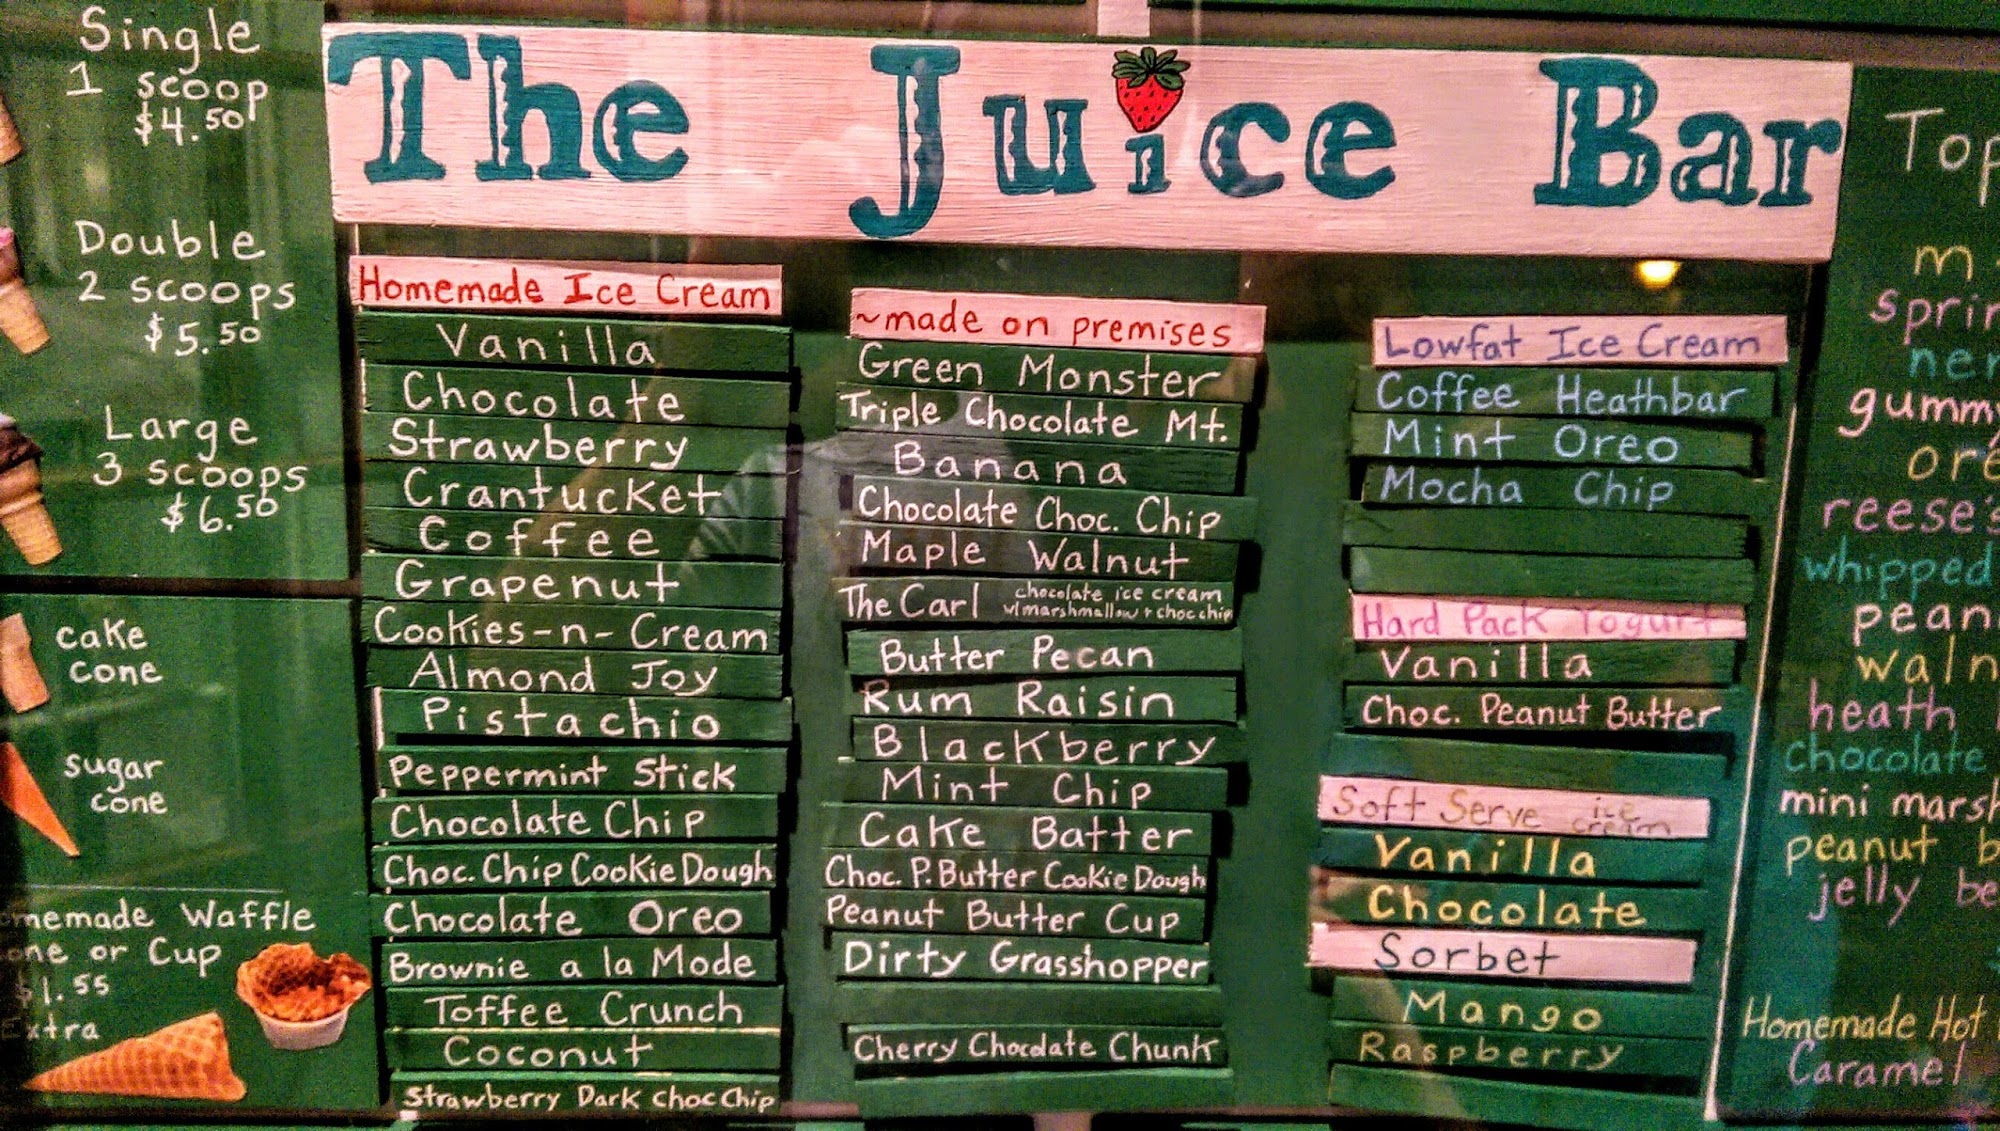 Single
1 scoop
$4.50
Double
2 scoops
$5.50
Large
3 scoops
$6.50
cake
cone
sugar
cone
Waffle
or Cup
$1.55
Extra
The Juice Bar
Homemade Ice Cream
Vanilla
Chocolate
Strawberry
Crantucket
Coffee
Grapenut
Cookies-n-Cream
Almond Joy
Pistachio
Peppermint Stick
Chocolate Chip
Choc. Chip Cookie Dough
Chocolate Oreo
Brownie a la Mode
Toffee Crunch
Coconut
Strawberry Dark Choc Chip
~made on premises
Green Monster
Triple Chocolate Mt.
Banana
Chocolate Choc. Chip
Maple Walnut
The Carl chocolate ice cream
w/marshmallow + choc chip
Butter Pecan
Rum Raisin
Blackberry
Mint Chip
Cake Batter
Choc. P. Butter Cookie Dough
Peanut Butter Cup
Dirty Grasshopper
Cherry Chocolate Chunk
Lowfat Ice Cream
Coffee Heathbar
Mint Oreo
Mocha Chip
Hard Pack Yogurt
Vanilla
Choc. Peanut Butter
Soft Serve ice
cream
Vanilla
Chocolate
Sorbet
Mango
Raspberry
whipped
heath
chocolate
mini
peanut
jelly
Homemade Hot
Caramel